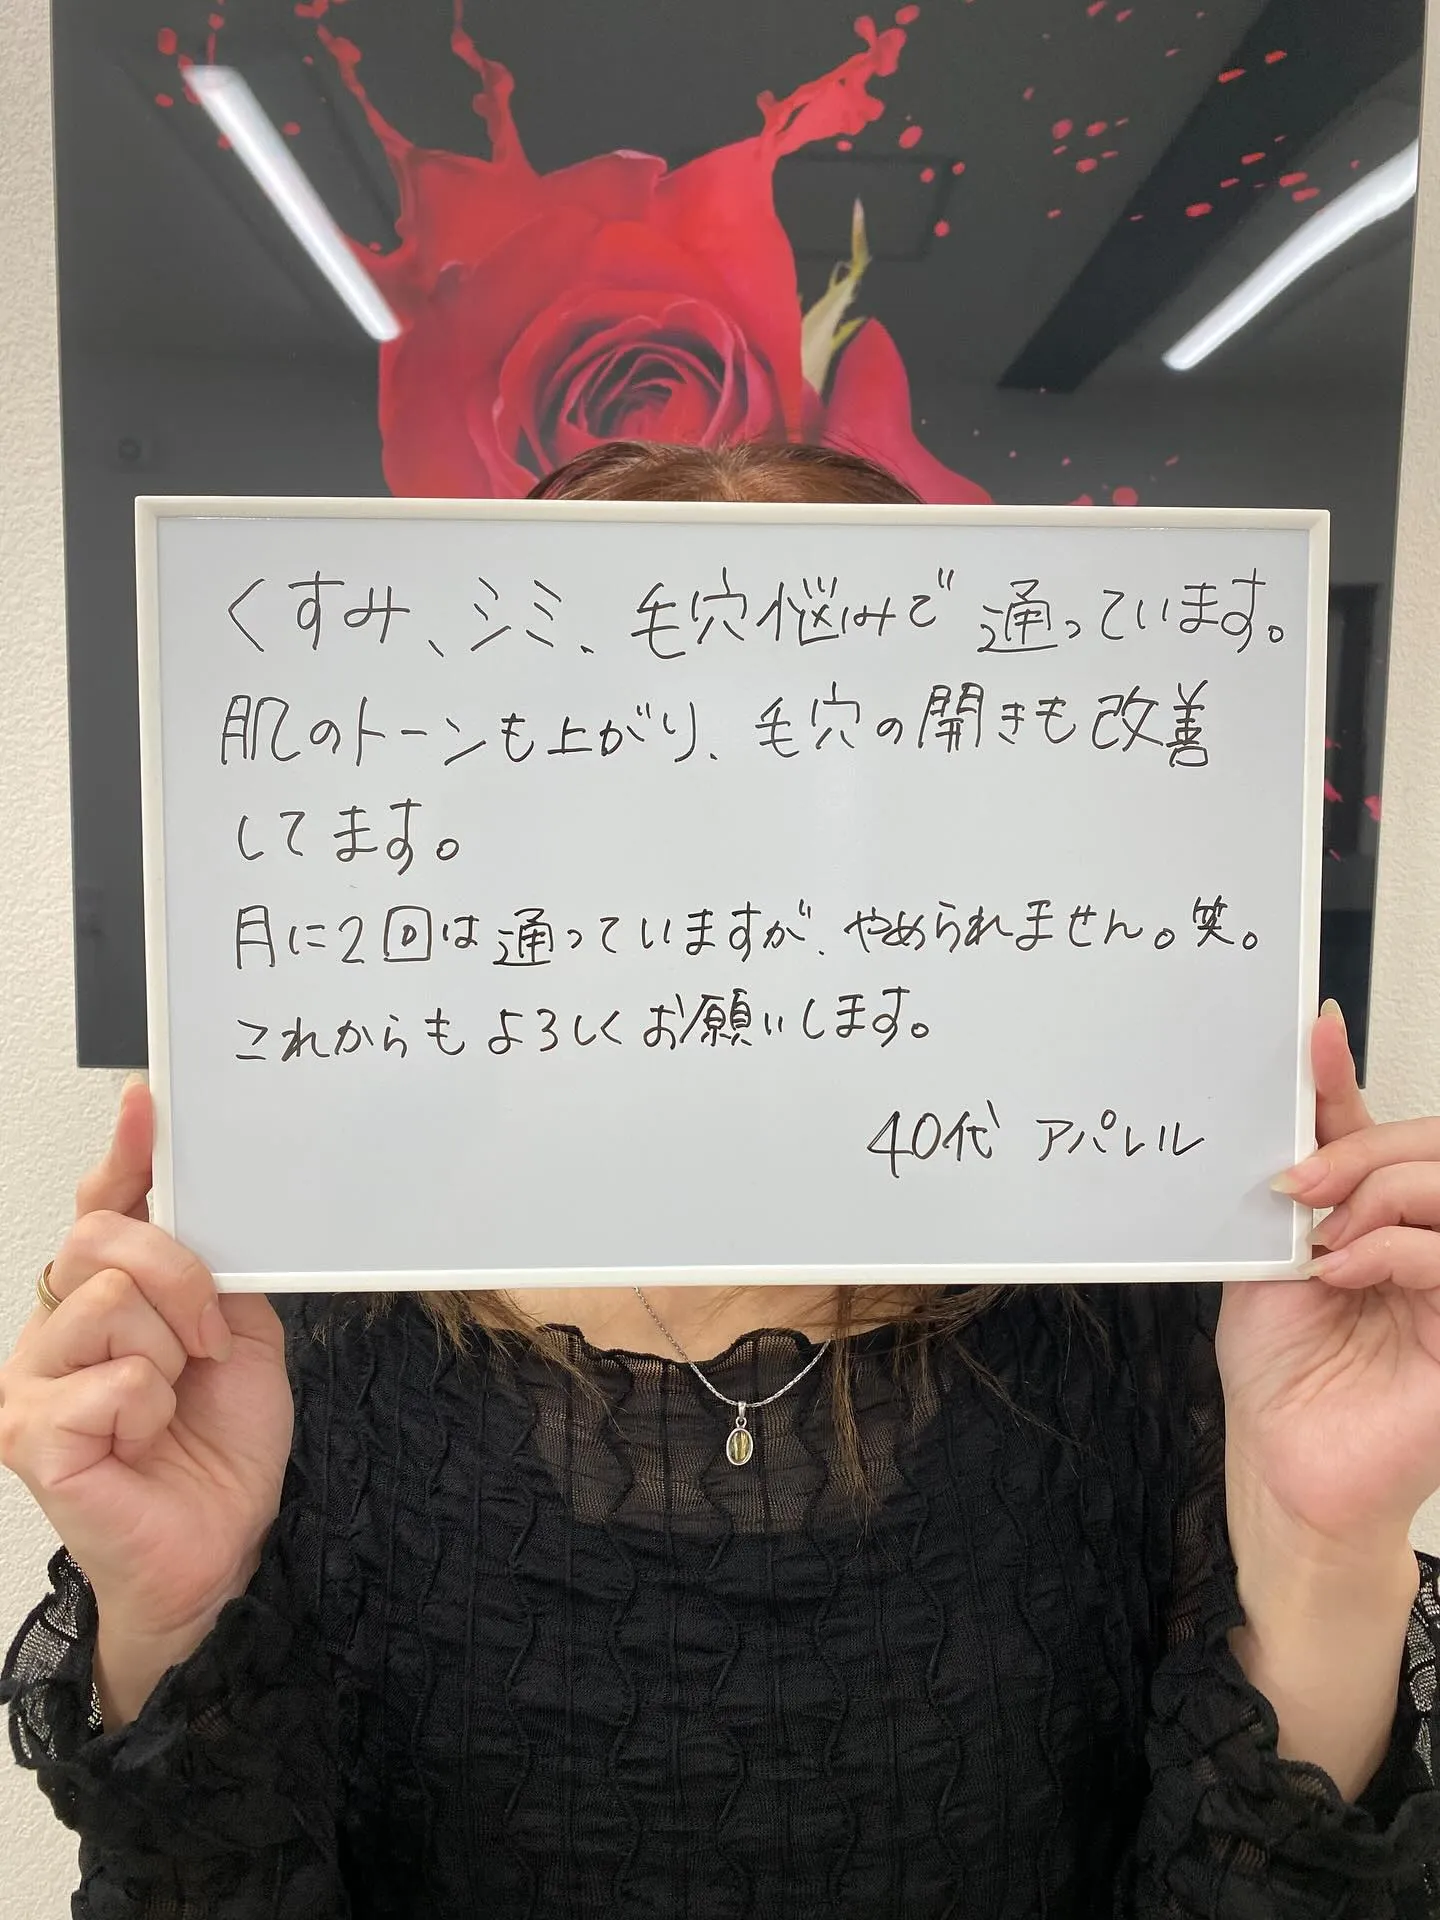 くすみ、シミ、毛穴悩みで通っています。
肌のトーンも上がり、毛穴の開きも改善
してます。
月に2回は通っていますが、やめられません。笑。
これからもよろしくお願いします。
40代 アパレル